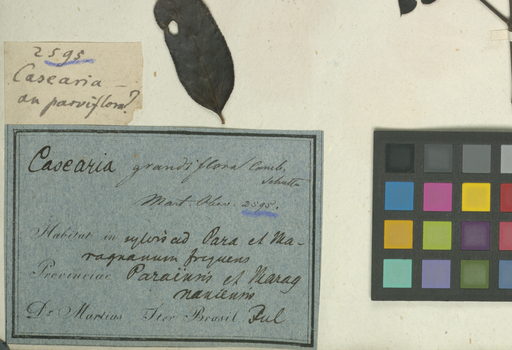 2595
Casearia —
an parviflora?
Casearia grandiflora Camb.
Mart. Obs. 2595.
Habitat in sylvis ad Para et Ma-
ragnanum frequens
Provinciae Paraënsis et Marag
naniensis
Dr Martius Iter Brasil. Jul